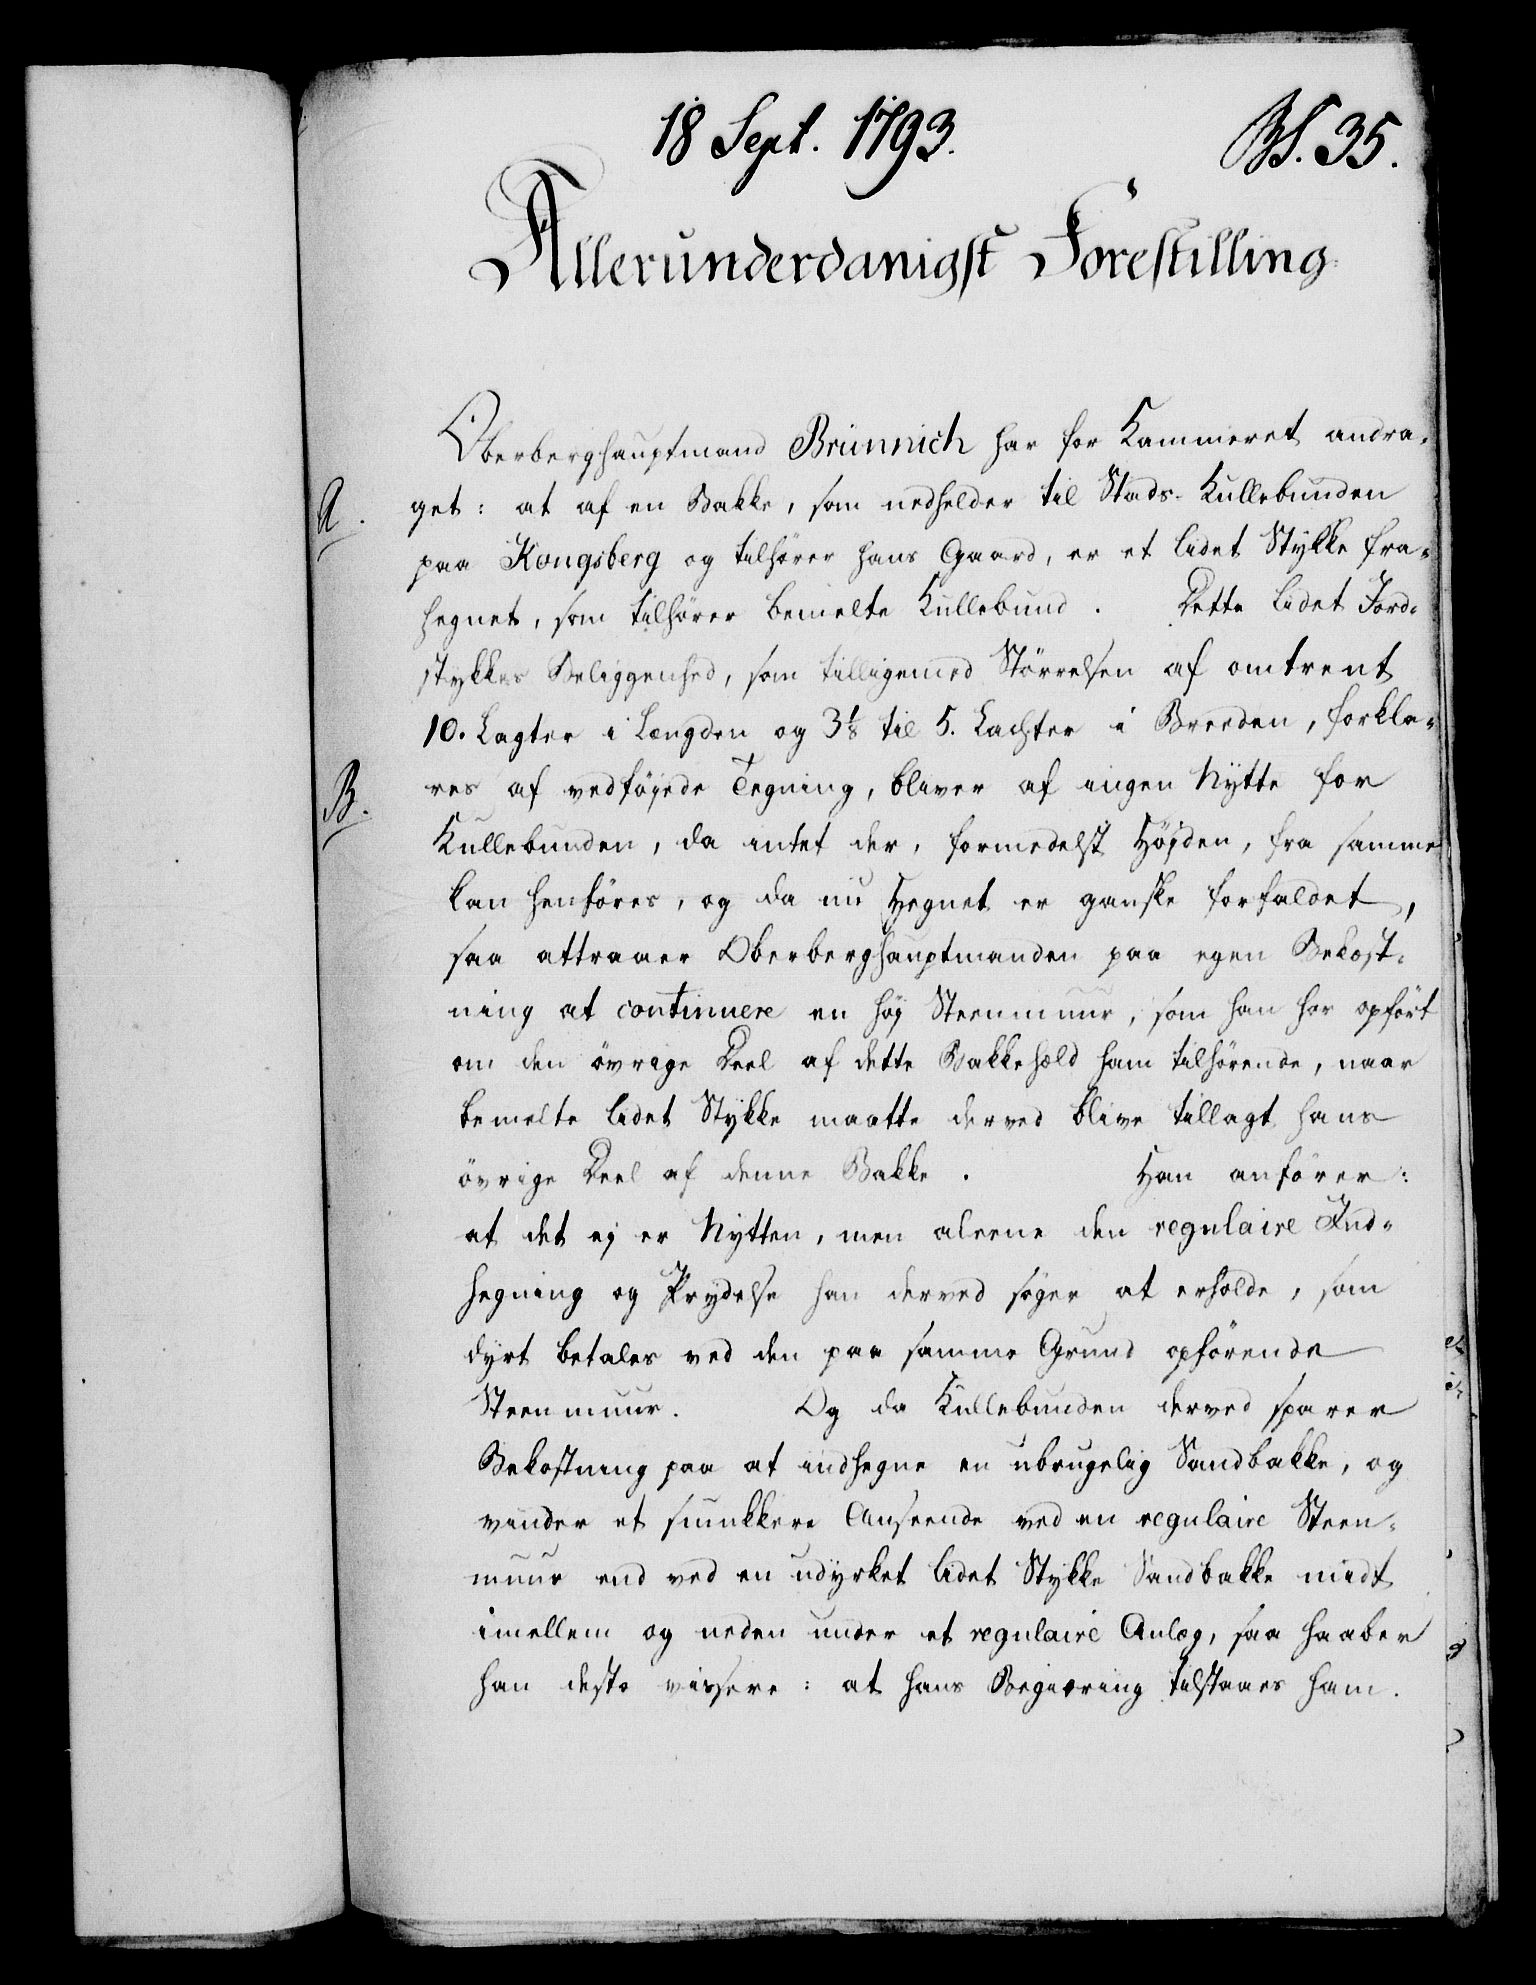 18 Sept. 1793.
BS. 35.
Allerunderdanigst Forestilling
Oberberghauptmand Brünnich har for Kammeret andra-
A. get: at af en Bakke, som nedhelder til Stads-Kullebunden
paa Kongsberg og tilhörer hans Gaard, er et lidet Stykke fra-
hegnet, som tilhörer bemelte Kullebund. Dette lidet Jord-
stykkes Beliggenhed, som tilligemed Störrelsen af omtrent
10. Lagter i Længden og 3 1/8 til 5. Lachter i Breeden, forkla-
B. res af vedföyede Tegning, bliver af ingen Nytte for
Kullebunden, da intet der, formedelst Höyden, fra samme
kan henföres, og da nu Hegnet er ganske forfaldet,
saa attraaer Oberberghauptmanden paa egen Bekost-
ning at continuere en höy Steenmuur, som han har opfört
om den övrige Deel af dette Bakkehæld ham tilhörende, naar
bemelte lidet Stykke maatte derved blive tillagt hans
övrige Deel af denne Bakke. Han anförer:
at det ej er Nytten, men aleene den regulaire Ind-
hegning og Prydelse han derved söger at erholde, som
dyrt betales ved den paa samme Grund opförende
Steenmuur. Og da Kullebunden derved sparer
Bekostning paa at indhegne en ubrugelig Sandbakke, og
vinder et smukkere Anseende ved en regulaire Steen-
muur end ved en udyrket lidet Stykke Sandbakke midt
imellem og neden under et regulaire Anlæg, saa haaber
han desto vissere: at hans Begiæring tilstaaes ham.